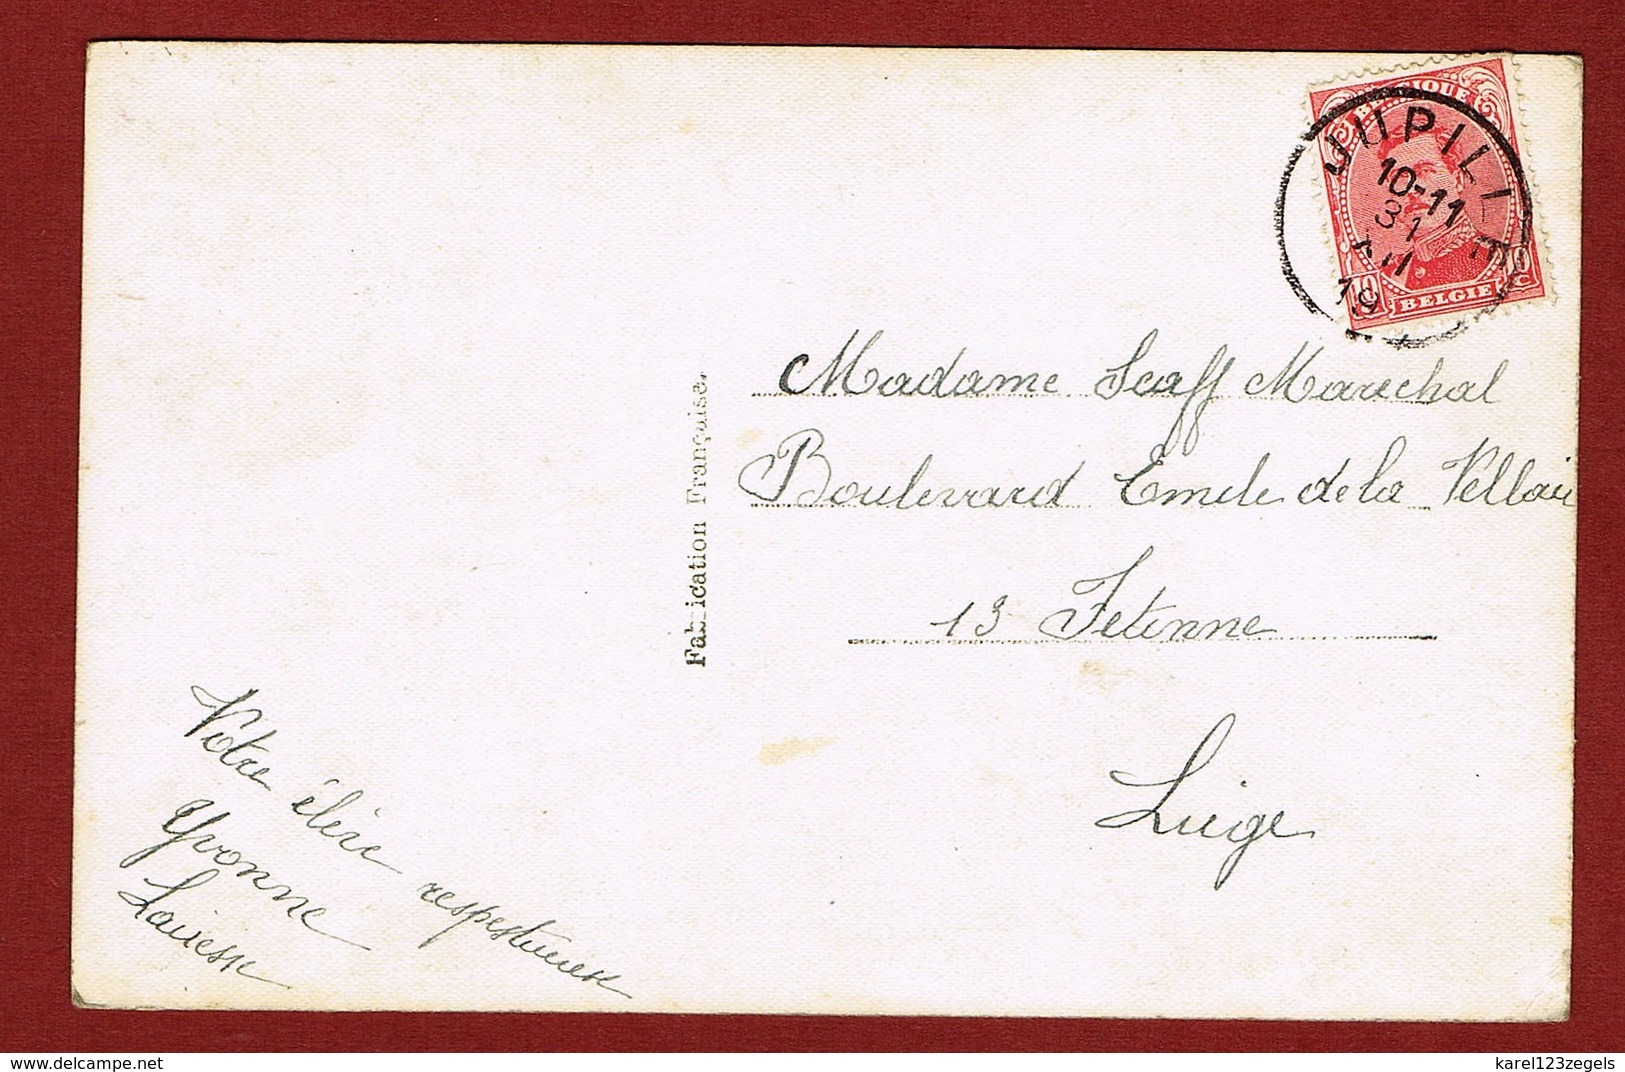 BELGIQUE
JUPILLE
10-11
31
XII
19
BELGIE
Madame Scaff Marechal
Boulevard Emile de la
13 Fetinne
Liège
Fabrication Française.
Votre élève respectueuse
Yvonne
delcampe.net
karel123zegels